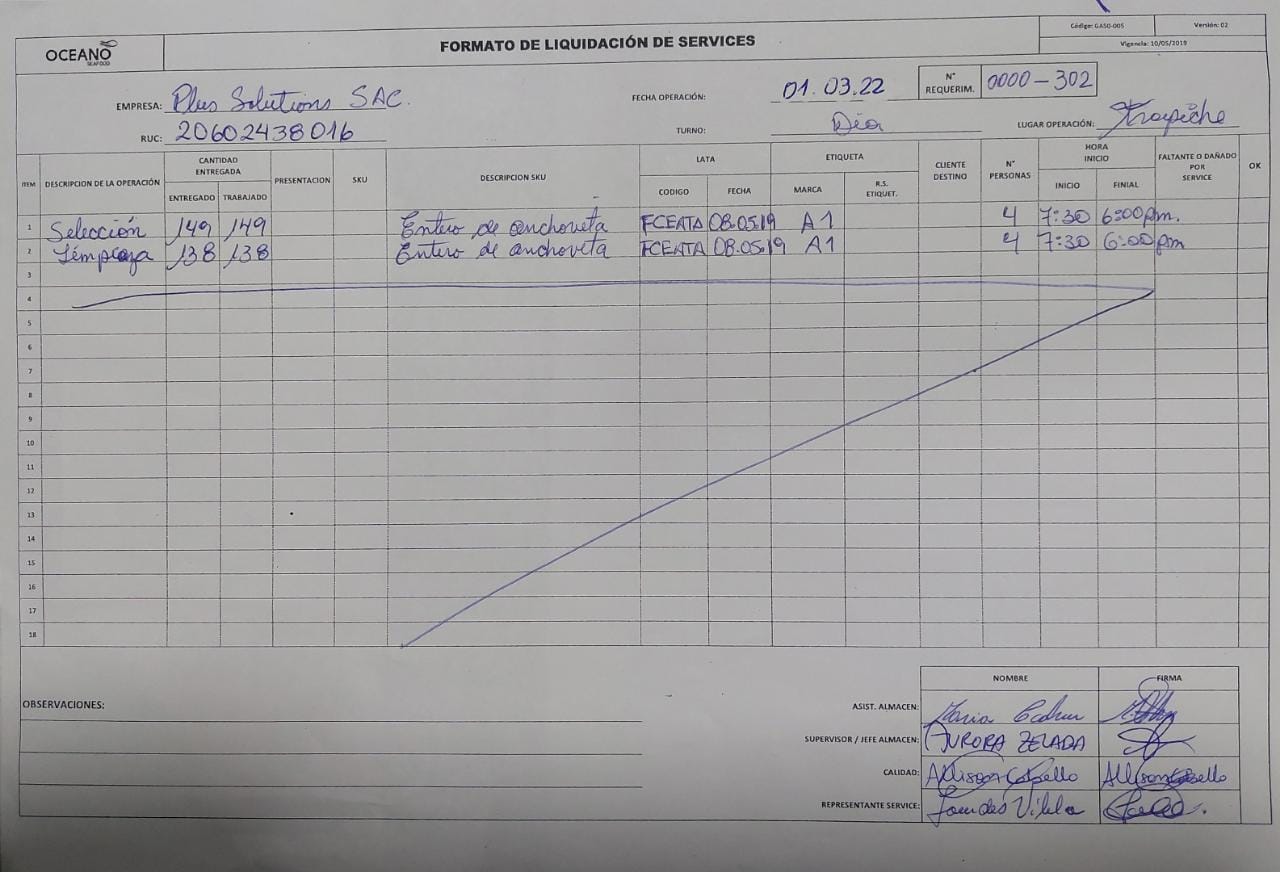 Código: GASG-005 Versión: 02
OCEANO SEAFOOD FORMATO DE LIQUIDACIÓN DE SERVICES Vigencia: 10/05/2019
EMPRESA: Plus Solutions SAC. FECHA OPERACIÓN: 01.03.22 N° REQUERIM. 0000-302
RUC: 20602438016 TURNO: Día LUGAR OPERACIÓN: Trapiche
ITEM DESCRIPCION DE LA OPERACIÓN CANTIDAD ENTREGADA PRESENTACION SKU DESCRIPCION SKU LATA ETIQUETA CLIENTE DESTINO N° PERSONAS HORA INICIO FALTANTE O DAÑADO POR SERVICE OK
ENTREGADO TRABAJADO CODIGO FECHA MARCA R.S. ETIQUET. INICIO FINIAL
1 Selección 149 149 Entero de anchoveta FCEATA 08.05.19 A1 4 7:30 6:00pm.
2 Limpieza 138 138 Entero de anchoveta FCEATA 08.05.19 A1 4 7:30 6:00pm
3
4
5
6
7
8
9
10
11
12
13
14
15
16
17
18
NOMBRE FIRMA
OBSERVACIONES: ASIST. ALMACEN: Maria
SUPERVISOR / JEFE ALMACEN: AURORA ZELADA
CALIDAD: Allison Cabello Allison Cabello
REPRESENTANTE SERVICE: Lourdes Vilela